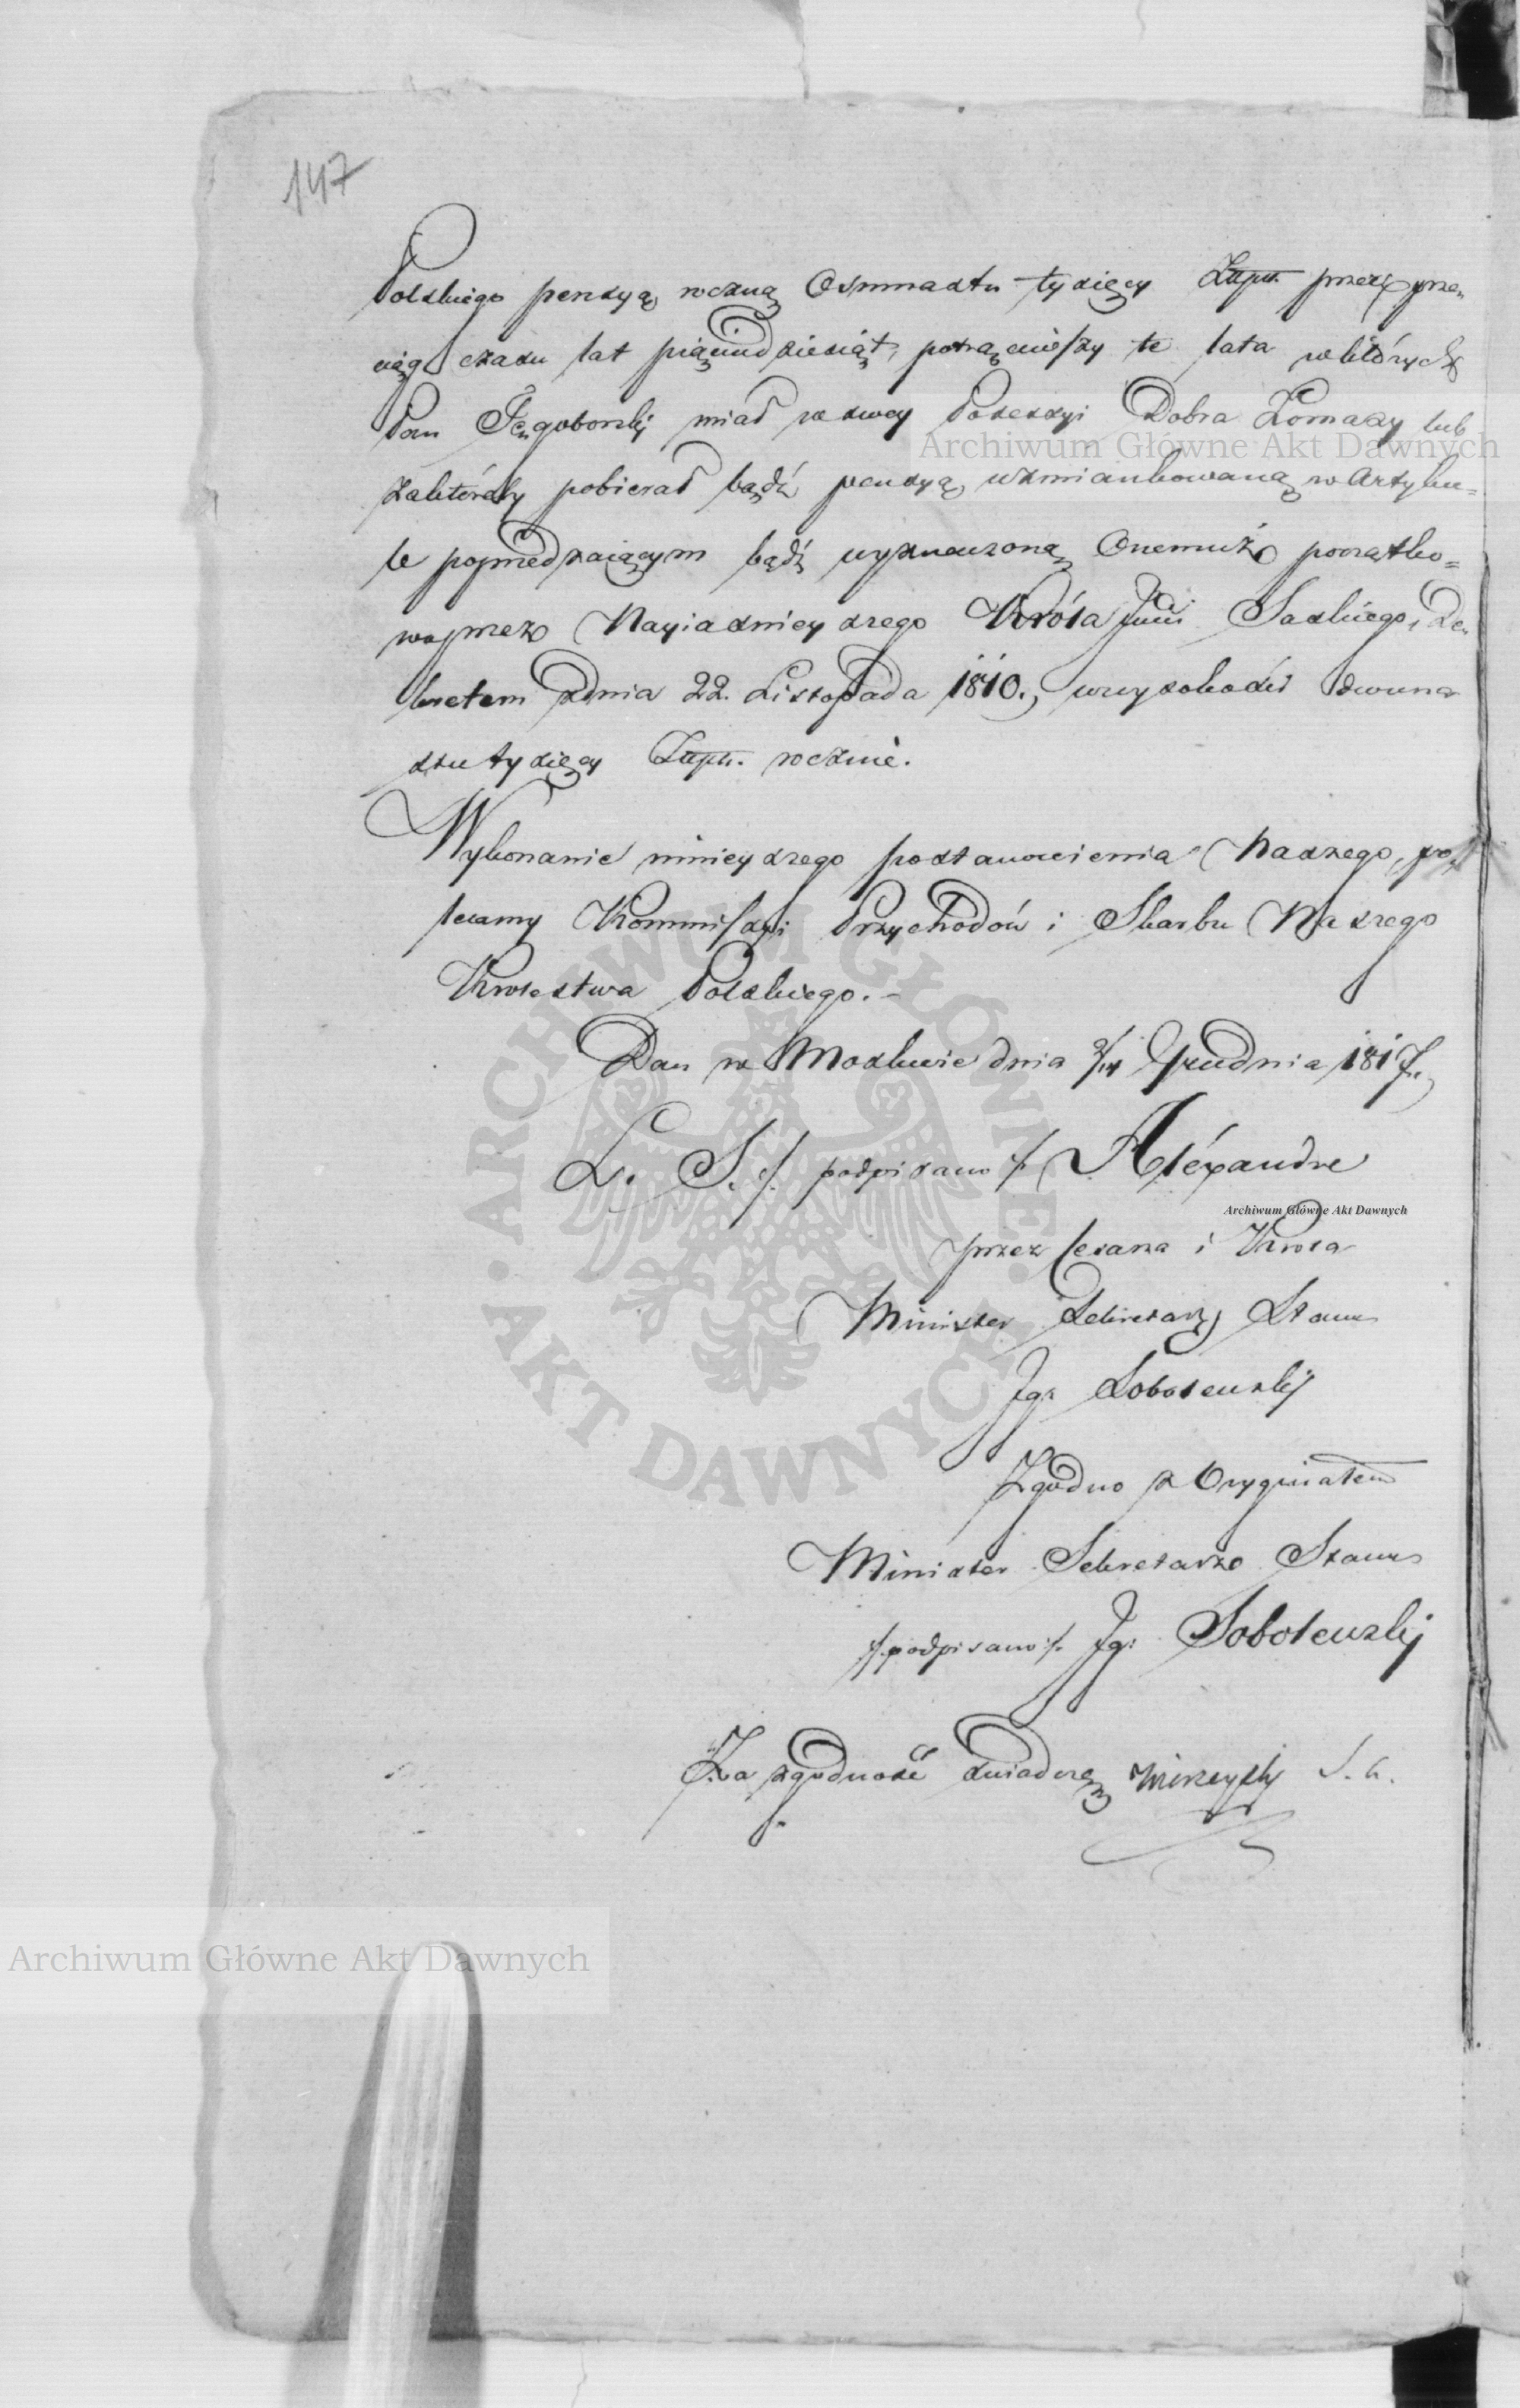 147
Polskiego pensyą roczną Osmnastu tysięcy Złłpol. przez prze„
ciąg czasu lat pięciudziesiąt, potrąciwszy te lata w których
Pan Tęgoborski miał w swey Possessyi Dobra Łomazy lub
Archiwum Główne Akt Dawnych
za które by pobierał bądź pensyą wzmiankowaną w Artyku=
le poprzedzaiącym bądź wyznaczoną Onemuż początko=
wo przez Nayiaśnieyszego Króla Jmci Saskiego, De„
kretem z dnia 22. Listopada 1810., w wysokości dwuna
stu tysięcy Złłpol. rocznie.
Wykonanie ninieyszego postanowienia Naszego, po„
lecamy Kommissyi Przychodów i Skarbu Naszego
Krolestwa Polskiego.–
Dan w Moskwie dnia 2/14 Grudnia 1817.
L. S. /. podpisano /. Aléxandre
Archiwum Główne Akt Dawnych
przez Cesarza i Krola
Minister Sekretarz Stanu
Ign Sobolewskij
Zgodno z Oryginałem
Minister Sekretarz Stanu
/. podpisano /. Ign Sobolewskij
Za zgodność świadczę
ARCHIWUM GŁÓWNE AKT DAWNYCH
Archiwum Główne Akt Dawnych